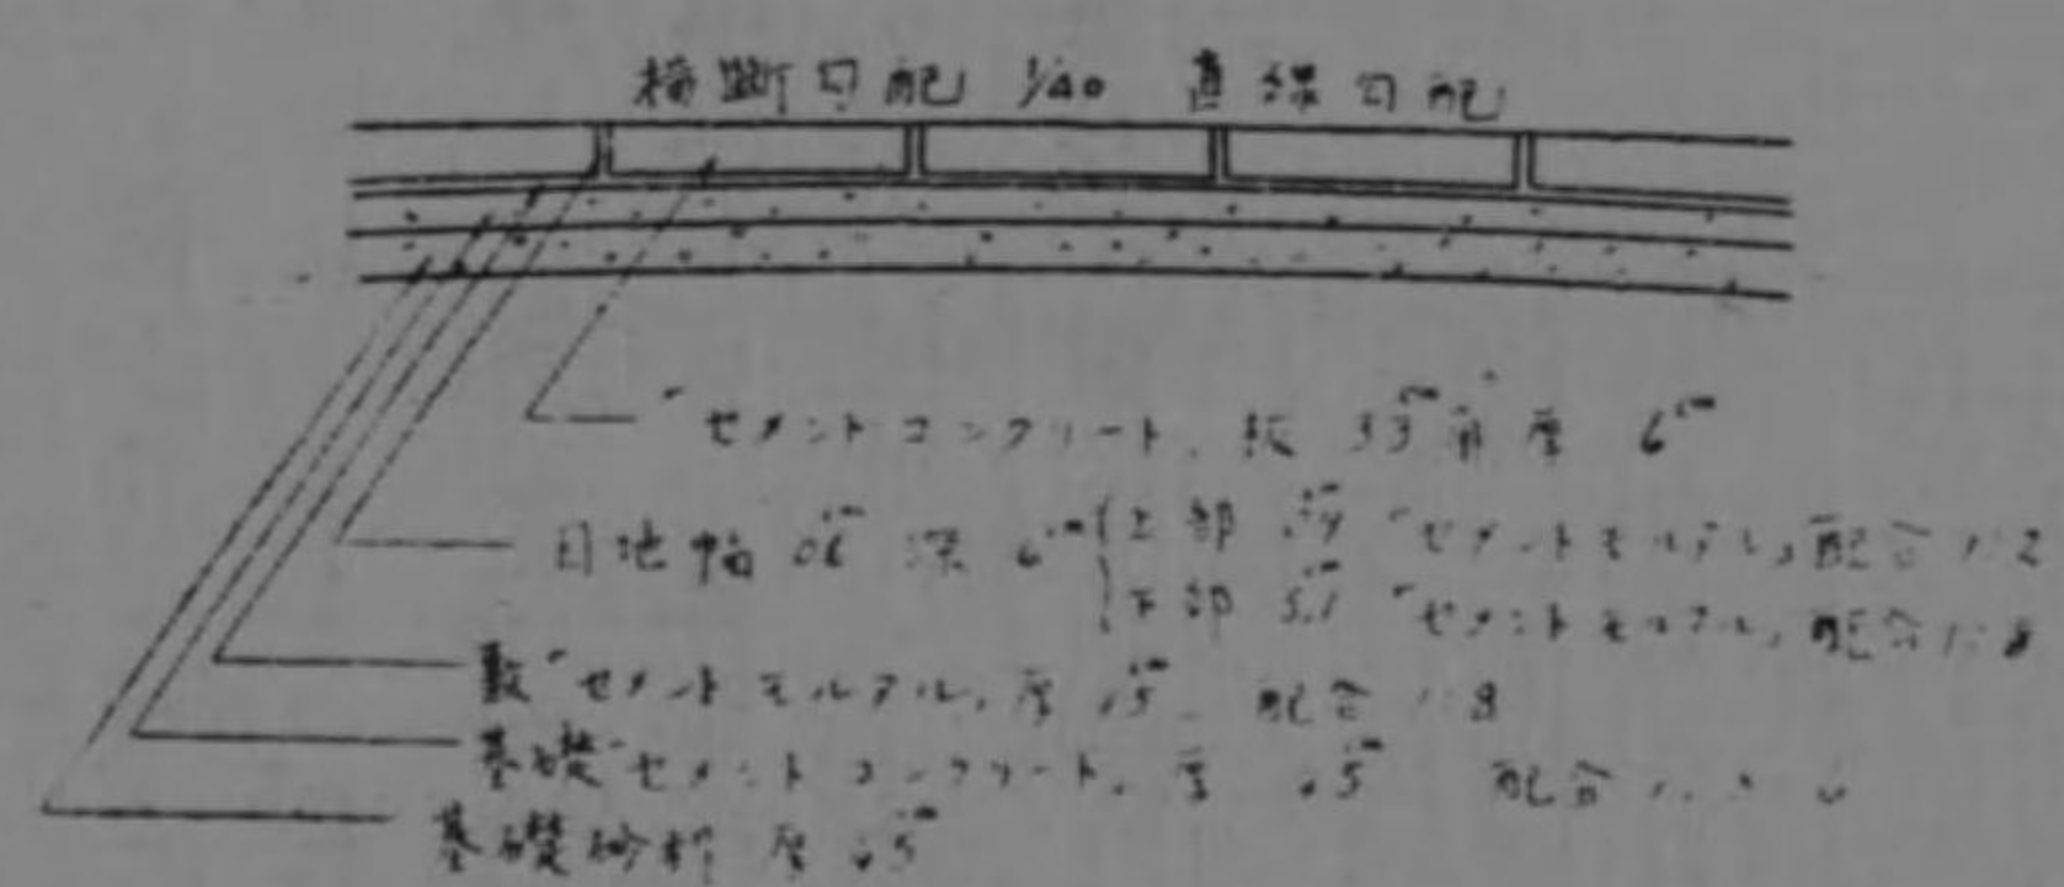 橫斷勾配 1/40 直線勾配
「セメントコンクリート」板 33cm角 厚 6cm
目地幅 0.6cm 深 6cm 上部 セメントモルタル」配合 1:2
下部 「セメントモルタル」配合 1:8
敷「セメントモルタル」厚 1.5cm 配合 1:8
基礎「セメントコンクリート」厚 4.5cm 配合
基礎砂利 厚 4.5cm